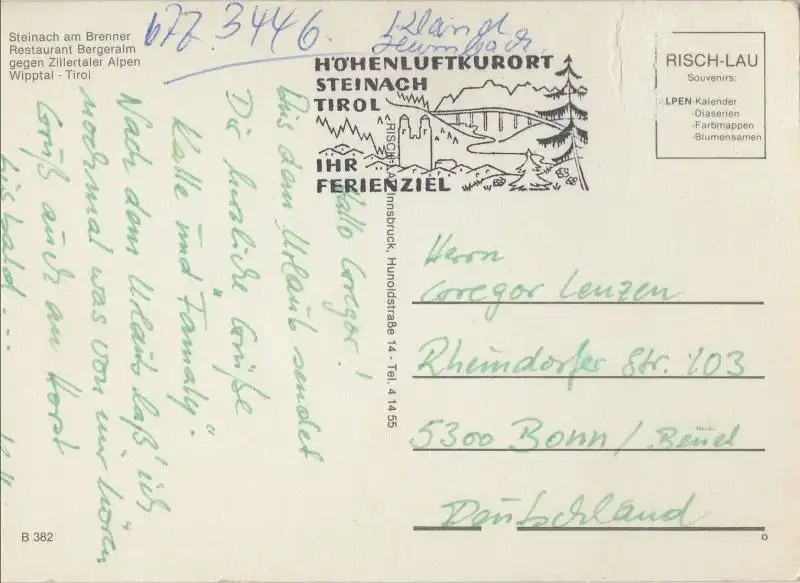 Steinach am Brenner
Restaurant Bergeralm
gegen Zillertaler Alpen
Wipptal - Tirol
677.3446.
HÖHENLUFTKURORT
STEINACH
TIROL
IHR
FERIENZIEL
RISCH-LAU
Souvenirs:
ALPEN-Kalender
-Diaserien
-Farbmappen
-Blumensamen
RISCH-LAU, Innsbruck, Hunoldstraße 14 - Tel. 4 14 55
Hallo Gregor!
Aus dem Urlaub sendet
Dir herzliche Grüße
Kalle und Family."
Nach dem Urlaub laß' ich
nochmal was von mir hören
Gruß auch an Horst
bis bald ...
Herrn
Gregor Lenzen
Rheindorfer Str. 103
5300 Bonn / Beuel
Deutschland
B 382